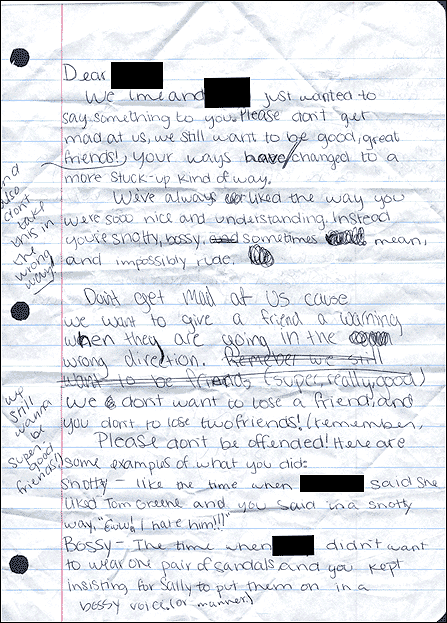 Dear
We (me and just wanted to
say something to you. Please don't get
mad at us, we still want to be good, great
friends!) Your ways have changed to a
more stuck-up kind of way.
We've always liked the way you
were soo nice and understanding. Instead
you're snotty, bossy, sometimes mean,
and impossibly rude.
and
also
don't
take
this in
the
wrong
way)
Don't get mad at us cause
we want to give a friend a warning
when they are going in the
wrong direction. Remeber we still
want to be friends, (super, really, good)
We don't want to lose a friend, and
you don't to lose two friends! (remember,
we
still
wanna
be
super
good
friends!)
Please don't be offended! Here are
some exampus of what you did:
Snotty - like the time when said she
liked Tom Greene and you said in a snotty
way, "Eww! I hate him!!!"
Bossy - The time when didn't want
to wear one pair of sandals and you kept
insisting for Sally to put them on in a
bossy voice. (or manner)